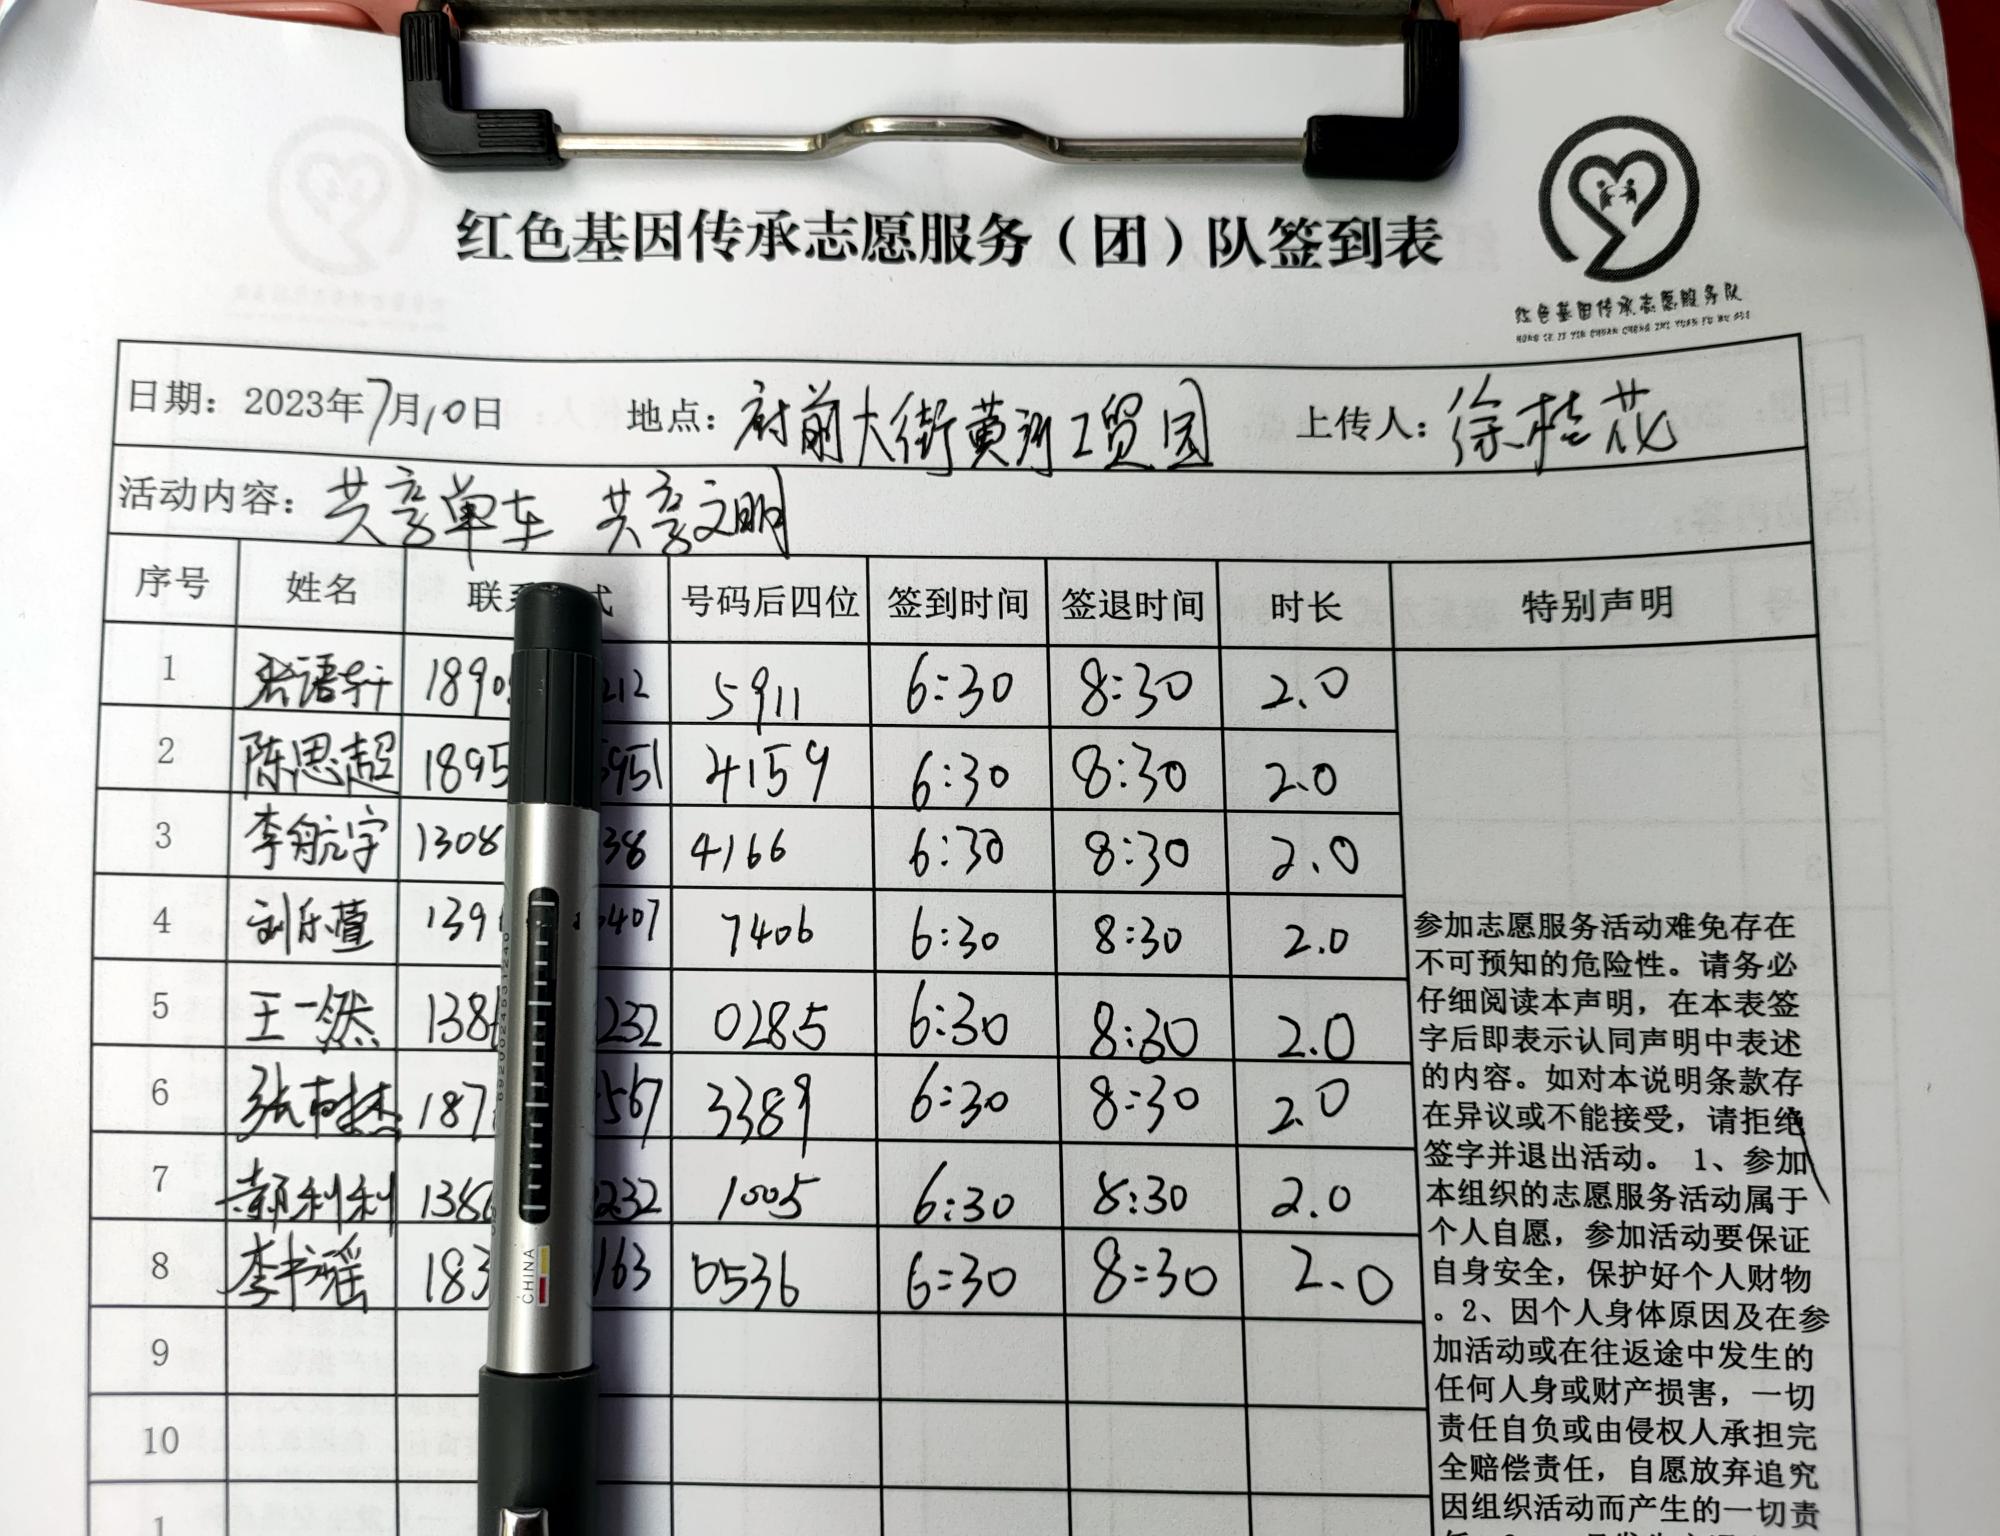 红色基因传承志愿服务（团）队签到表
红色基因传承志愿服务队
HONG SE JI YIN CHUAN CHENG ZHI YUAN FU WU DUI
日期：2023年7月10日 地点：府前大街黄河工贸园 上传人：徐桂花
活动内容：共享单车 共享文明
序号 姓名 联系 式 号码后四位 签到时间 签退时间 时长 特别声明
1 语轩 189 212 5911 6:30 8:30 2.0
2 陈思超 1895 5951 4159 6:30 8:30 2.0
3 李航宇 1308 38 4166 6:30 8:30 2.0
4 刘乐萱 139 0407 7406 6:30 8:30 2.0
5 王一然 138 232 0285 6:30 8:30 2.0
6 张 187 567 3389 6:30 8:30 2.0
7 郝利利 1386 232 1005 6:30 8:30 2.0
8 李书瑶 183 163 0536 6:30 8:30 2.0
9
10
1
参加志愿服务活动难免存在
不可预知的危险性。请务必
仔细阅读本声明，在本表签
字后即表示认同声明中表述
的内容。如对本说明条款存
在异议或不能接受，请拒绝
签字并退出活动。 1、参加
本组织的志愿服务活动属于
个人自愿，参加活动要保证
自身安全，保护好个人财物
。2、因个人身体原因及在参
加活动或在往返途中发生的
任何人身或财产损害，一切
责任自负或由侵权人承担完
全赔偿责任，自愿放弃追究
因组织活动而产生的一切责
6920024531240
CHINA